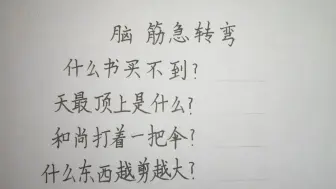 脑筋急转弯
什么书买不到?
天最顶上是什么?
和尚打着一把伞?
什么东西越剪越大?